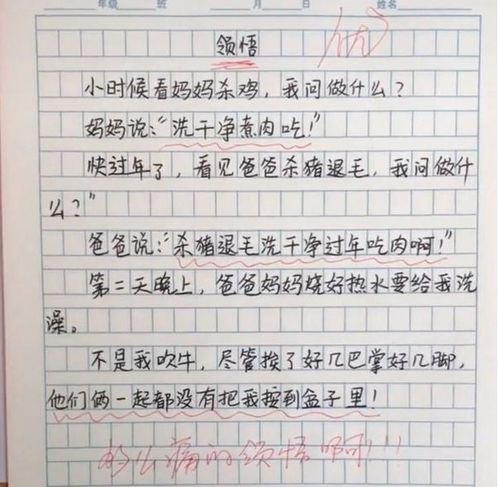 年级 班 月 日 姓名
领悟 优
小时候看妈妈杀鸡，我问做什么？
妈妈说：“洗干净煮肉吃！”
快过年了，看见爸爸杀猪退毛，我问做什
么？”
爸爸说：“杀猪退毛洗干净过年吃肉啊！”
第二天晚上，爸爸妈妈烧好热水要给我洗
澡。
不是我吹牛，尽管挨了好几巴掌好几脚，
他们俩一起都没有把我按到盆子里！
多么痛的领悟啊！！！